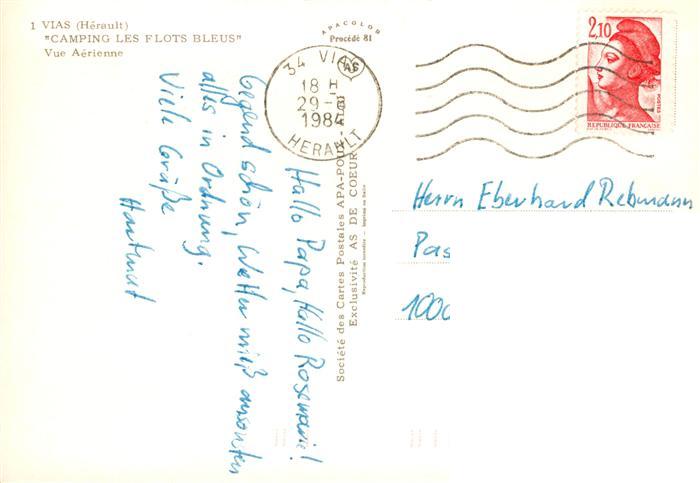 1 VIAS (Hérault)
"CAMPING LES FLOTS BLEUS"
Vue Aérienne
APACOLOR
Procédé 81
34 VIAS
18 H
29-8
1984
HERAULT
2,10
POSTES
REPUBLIQUE FRANÇAISE
Hallo Papa, Hallo Rosemarie!
Gegend schön, Wetter mieß ansonsten
alles in Ordnung.
Viele Grüße
Hartmut
Société des Cartes Postales APA-POUX
Exclusivité AS DE COEUR
Reproduction interdite - Imprimé en Italie
Herrn Eberhard Rebmann
Pas
100